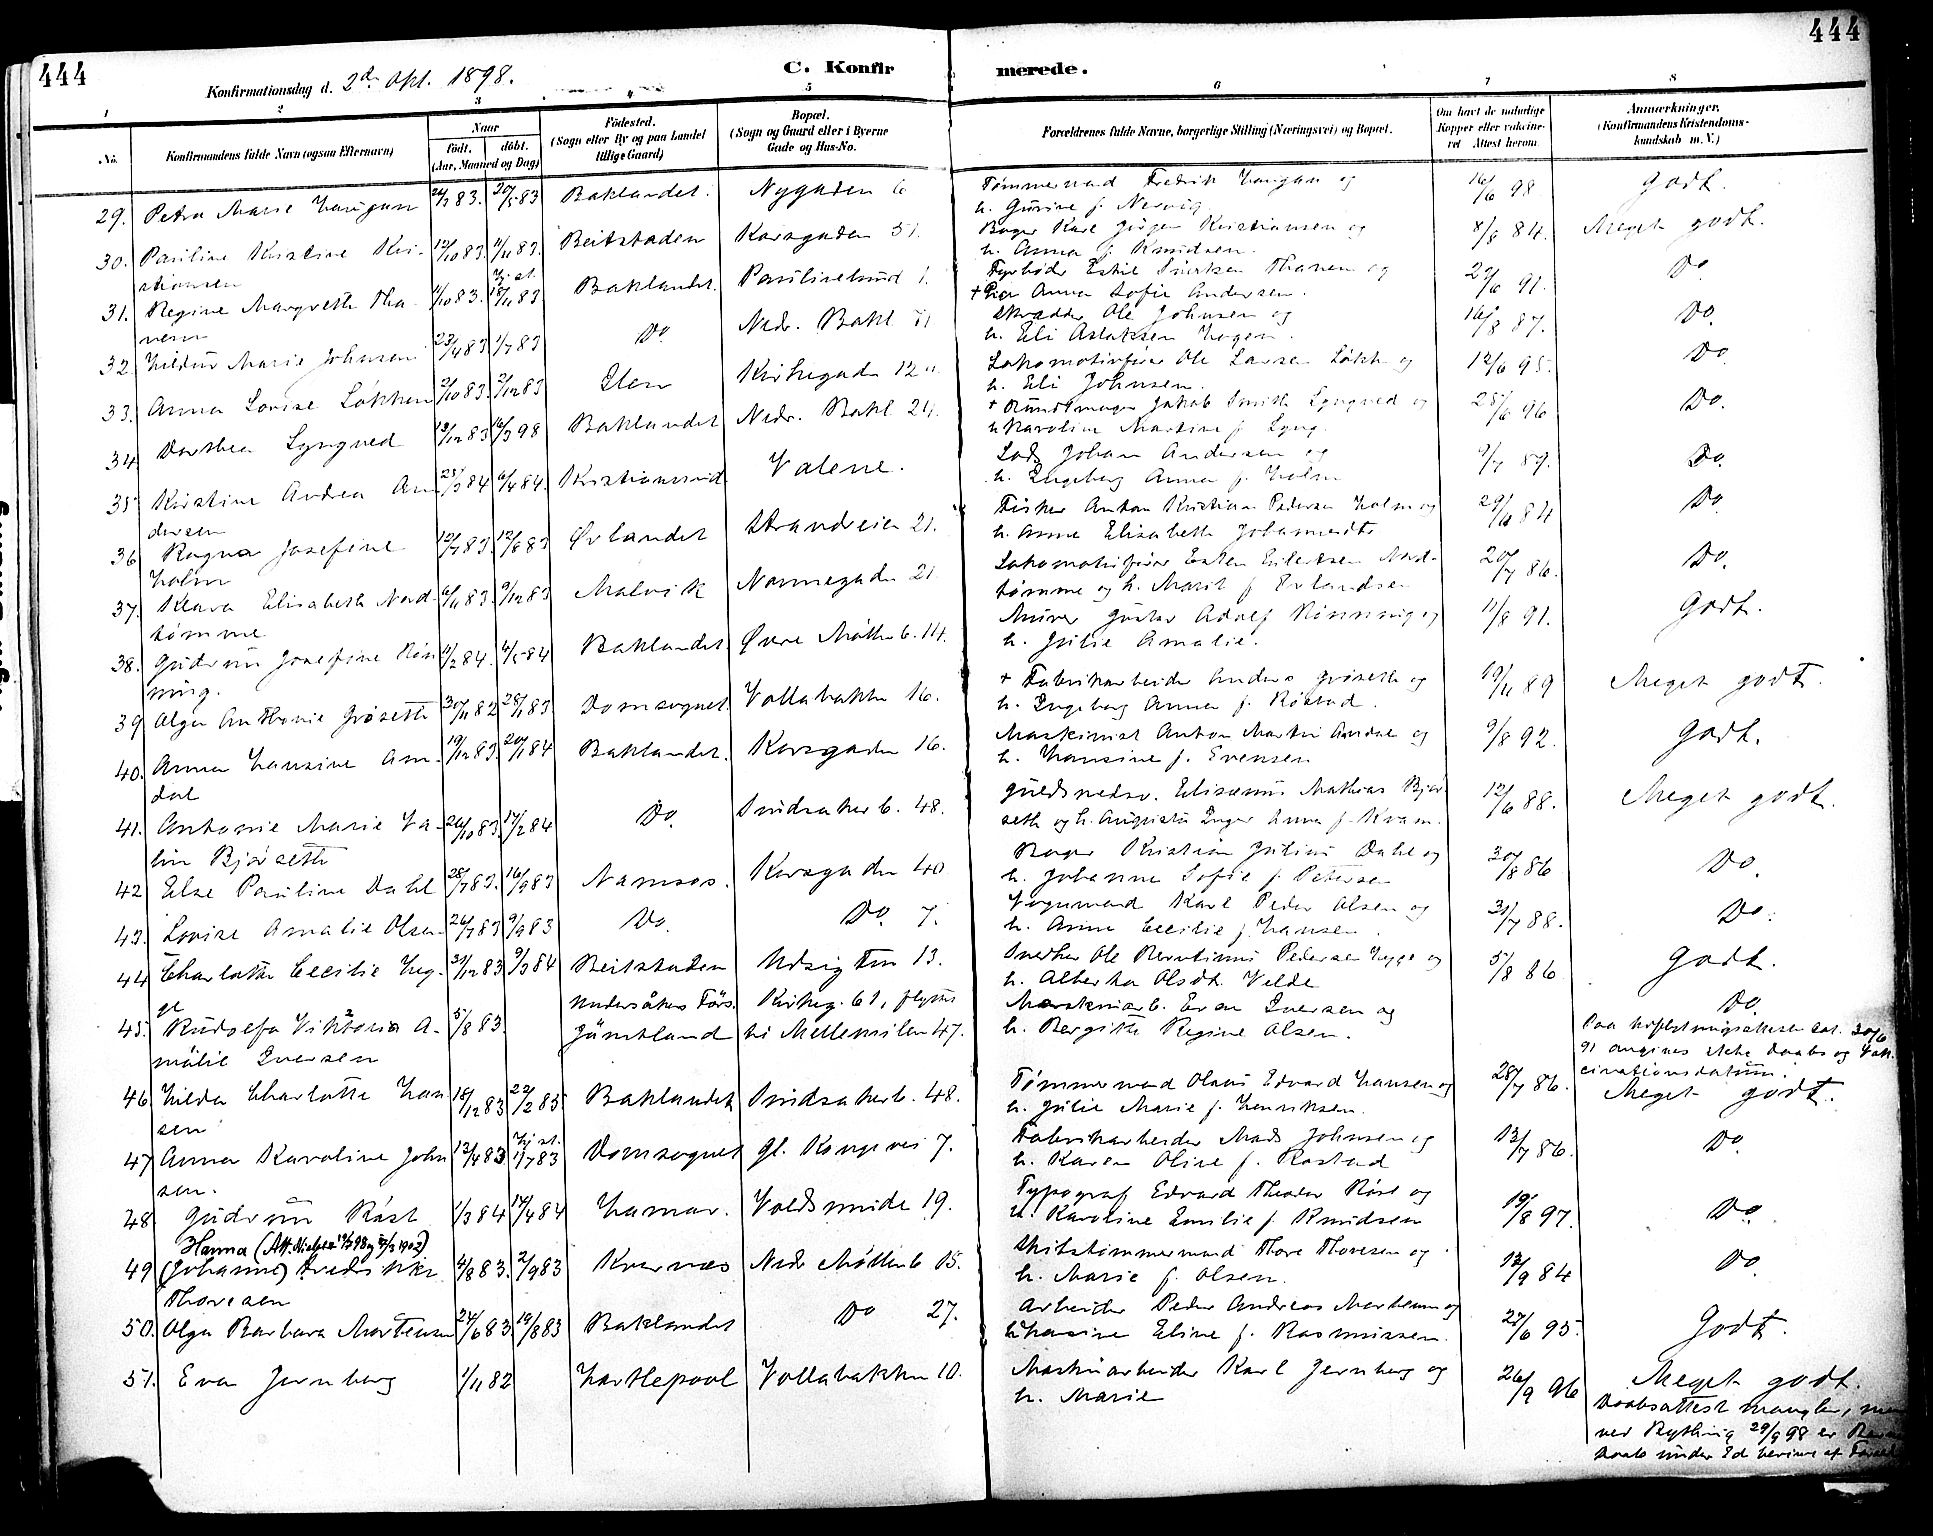 444
C. Konfirmerede.
444
Konfirmationsdag d. 2d Okt. 1898.
1 2 3 4 5 6 7 8
No.
Konfirmandens fulde Navn (ogsaa Efternavn)
Naar
født. døbt.
(Aar, Maaned og Dag)
Fødested.
(Sogn eller By og paa Landet tillige Gaard)
Bopæl.
(Sogn og Gaard eller i Byerne Gade og Hus-No.
Forældrenes fulde Navne, borgerlige Stilling (Næringsvei) og Bopæl.
Om havt de naturlige Kopper eller vaccineret Attest herom
Anmærkninger.
(Konfirmandens Kristendomskundskab m. V.)
29. Petra Marie 83. 83 Baklandet. Nygaden 6 Tømmermand Fredrik og 16/6 98 Godt.
h. Gurine f.
30. Pauline Kristine Kri- 12/10 83. 11/11 83. Beitstaden Korsgaden 51. Bager Karl Jørgen Kristiansen og 8/8 84. Meget godt.
stiansen h. Anna f. Knudsen.
31. Regine Margrethe Tha- 11/10 83. Hj. st. 18/11 83 Baklandet. Paulinelund 1. Fyrbøder Thanem og 29/6 91. Do
nem + Anna Sofie Andersen.
32. Hildur Marie Johnsen 23/4 83 1/7 83 Do Nedr. Bakl Skrædder Ole Johnsen og 16/8 87. Do.
h. Eli Aslaksen
33. Anna Lovise Løkken 2/10 83. 2/12 83 Ilen Kirkegaden 12 Lokomotivfører Ole Larsen Løkken og 12/6 95. Do
h. Eli Johnsen.
34. Dorthea Lyngved 13/12 83 16/3 98 Baklandet Nedr. Bakl 24. + Jakob Smith Lyngved og 25/6 96 Do.
h Karoline Martine f. Lyng.
35 Kristine Andrea An- 25/3 84 6/4 84. Kristianssund Valene. Lods Johan Andersen og 9/7 89. Do.
dersen h. Ingeborg Anna f. Holm
36 Ragna Josefine 12/7 83. 12/8 83 Ørlandet Strandveien 21. Fisker Anton Kristian Pedersen Holm og 29/6 84 Do
Holm h. Anne Elisabeth
37. Klara Elisabeth Nord- 6/11 83. 9/12 83 Malvik Nonnegaden 21 Lokomotivfører Esten Nord- 20/7 86. Do.
tømme tømme og h. Marit f. Erlandsen
38. Gudrun Josefine Røn- 11/2 84. 4/5 84 Baklandet Øvre Møllenb. 14. Murer Gustav Adolf Rønning og 11/8 91. Godt.
ning. h. Julie Amalie.
39 Olga Anthonie Grøseth 30/11 82 28/1 83 Domsognet Vollabakken 16. + Fabrikarbeider Anders Grøseth og 19/11 89 Meget godt.
h. Ingeborg Anna f.
40. Anna Hansine Am- 19/12 83. 20/1 84 Baklandet. Korsgaden 16. Maskinist Anton Martin Amdal og 9/8 92. Godt.
dal h. Hansine f. Evensen
41. Antonie Marie Va- 26/10 83. 17/2 84 Do. Duedsakerb. 48. Guldsmedsv. Mathias Bjør- 12/6 88. Meget godt.
lin Bjørseth seth og h. Augusta Inger Anna f. Kvam.
42 Else Pauline Dahl 28/7 83. 16/9 83 Namsos. Korsgaden 40 Bager Kristian Julius Dahl og 30/8 86 Do.
h. Johanne Sofie f. Petersen
43. Lovise Amalie Olsen 26/7 83 9/9 83 Do. Do. 7. Vognmand Karl Peder Olsen og 31/7 88. Do.
h. Anne Cecilie f. Hansen.
44 Charlotte Cecilie Hyg- 31/12 83 9/3 84 Beitstaden Udsigten 13. Snedker Ole Pedersen Hygge og 5/8 86. Godt.
ge h. Alberta Olsdt. Velde
45. Rudolfa Viktoria A- 5/8 83. Undersåkers Førs. Kirkeg. 61, flytter Maskinarb. Even Iversen og Do.
malie Iversen Jämtland til Mellemilen 47. h. Bergithe Regine Olsen. Paa Indflytningsattesten dat. 30/6
91 angives ikke Daabs og Vak-
cinationsdatum.
46 Hilda Charlotte Han- 18/12 83 22/2 85 Baklandet Duedsakerb. 48. Tømmermand Olaus Edvard Hansen og 28/7 86. Meget godt.
sen h. Julie Marie f. Henriksen.
47 Anna Karoline John- 12/4 83 Hj. st. 1/7 83 Domsognet Gl. Kongevei 7. Fabrikarbeider Mads Johnsen og 13/7 86. Do
sen. h. Karen Oline f. Rostad
48 Gudrun Røst 1/3 84 14/4 84 Hamar. Voldsminde 19. Typograf Edvard Theodor Røst og 19/8 97. Do
h. Karoline Emilie f. Knudsen
Hanna (Att. 1903)
49 (Johanne) Fredrikke 4/8 83. 2/9 83 Kvernæs Nedr Møllenb 15. Skibstømmermand Thore Thoresen og 13/9 84 Do
Thoresen h. Marie f. Olsen.
50. Olga Barbara Mortensen 24/6 83 19/8 83 Baklandet Do 27. Arbeider Peder Andreas Mortensen og 25/6 95. Godt.
h. Hansine Eline f. Rasmussen.
51. Eva Jernberg 1/11 82 Hartlepool Vollabakken 10. Maskinarbeider Karl Jernberg og 26/9 96 Meget godt.
h. Marie Daabsattest mangler, men
ved 29/9 98 er
Daab under Ed bevidnet af